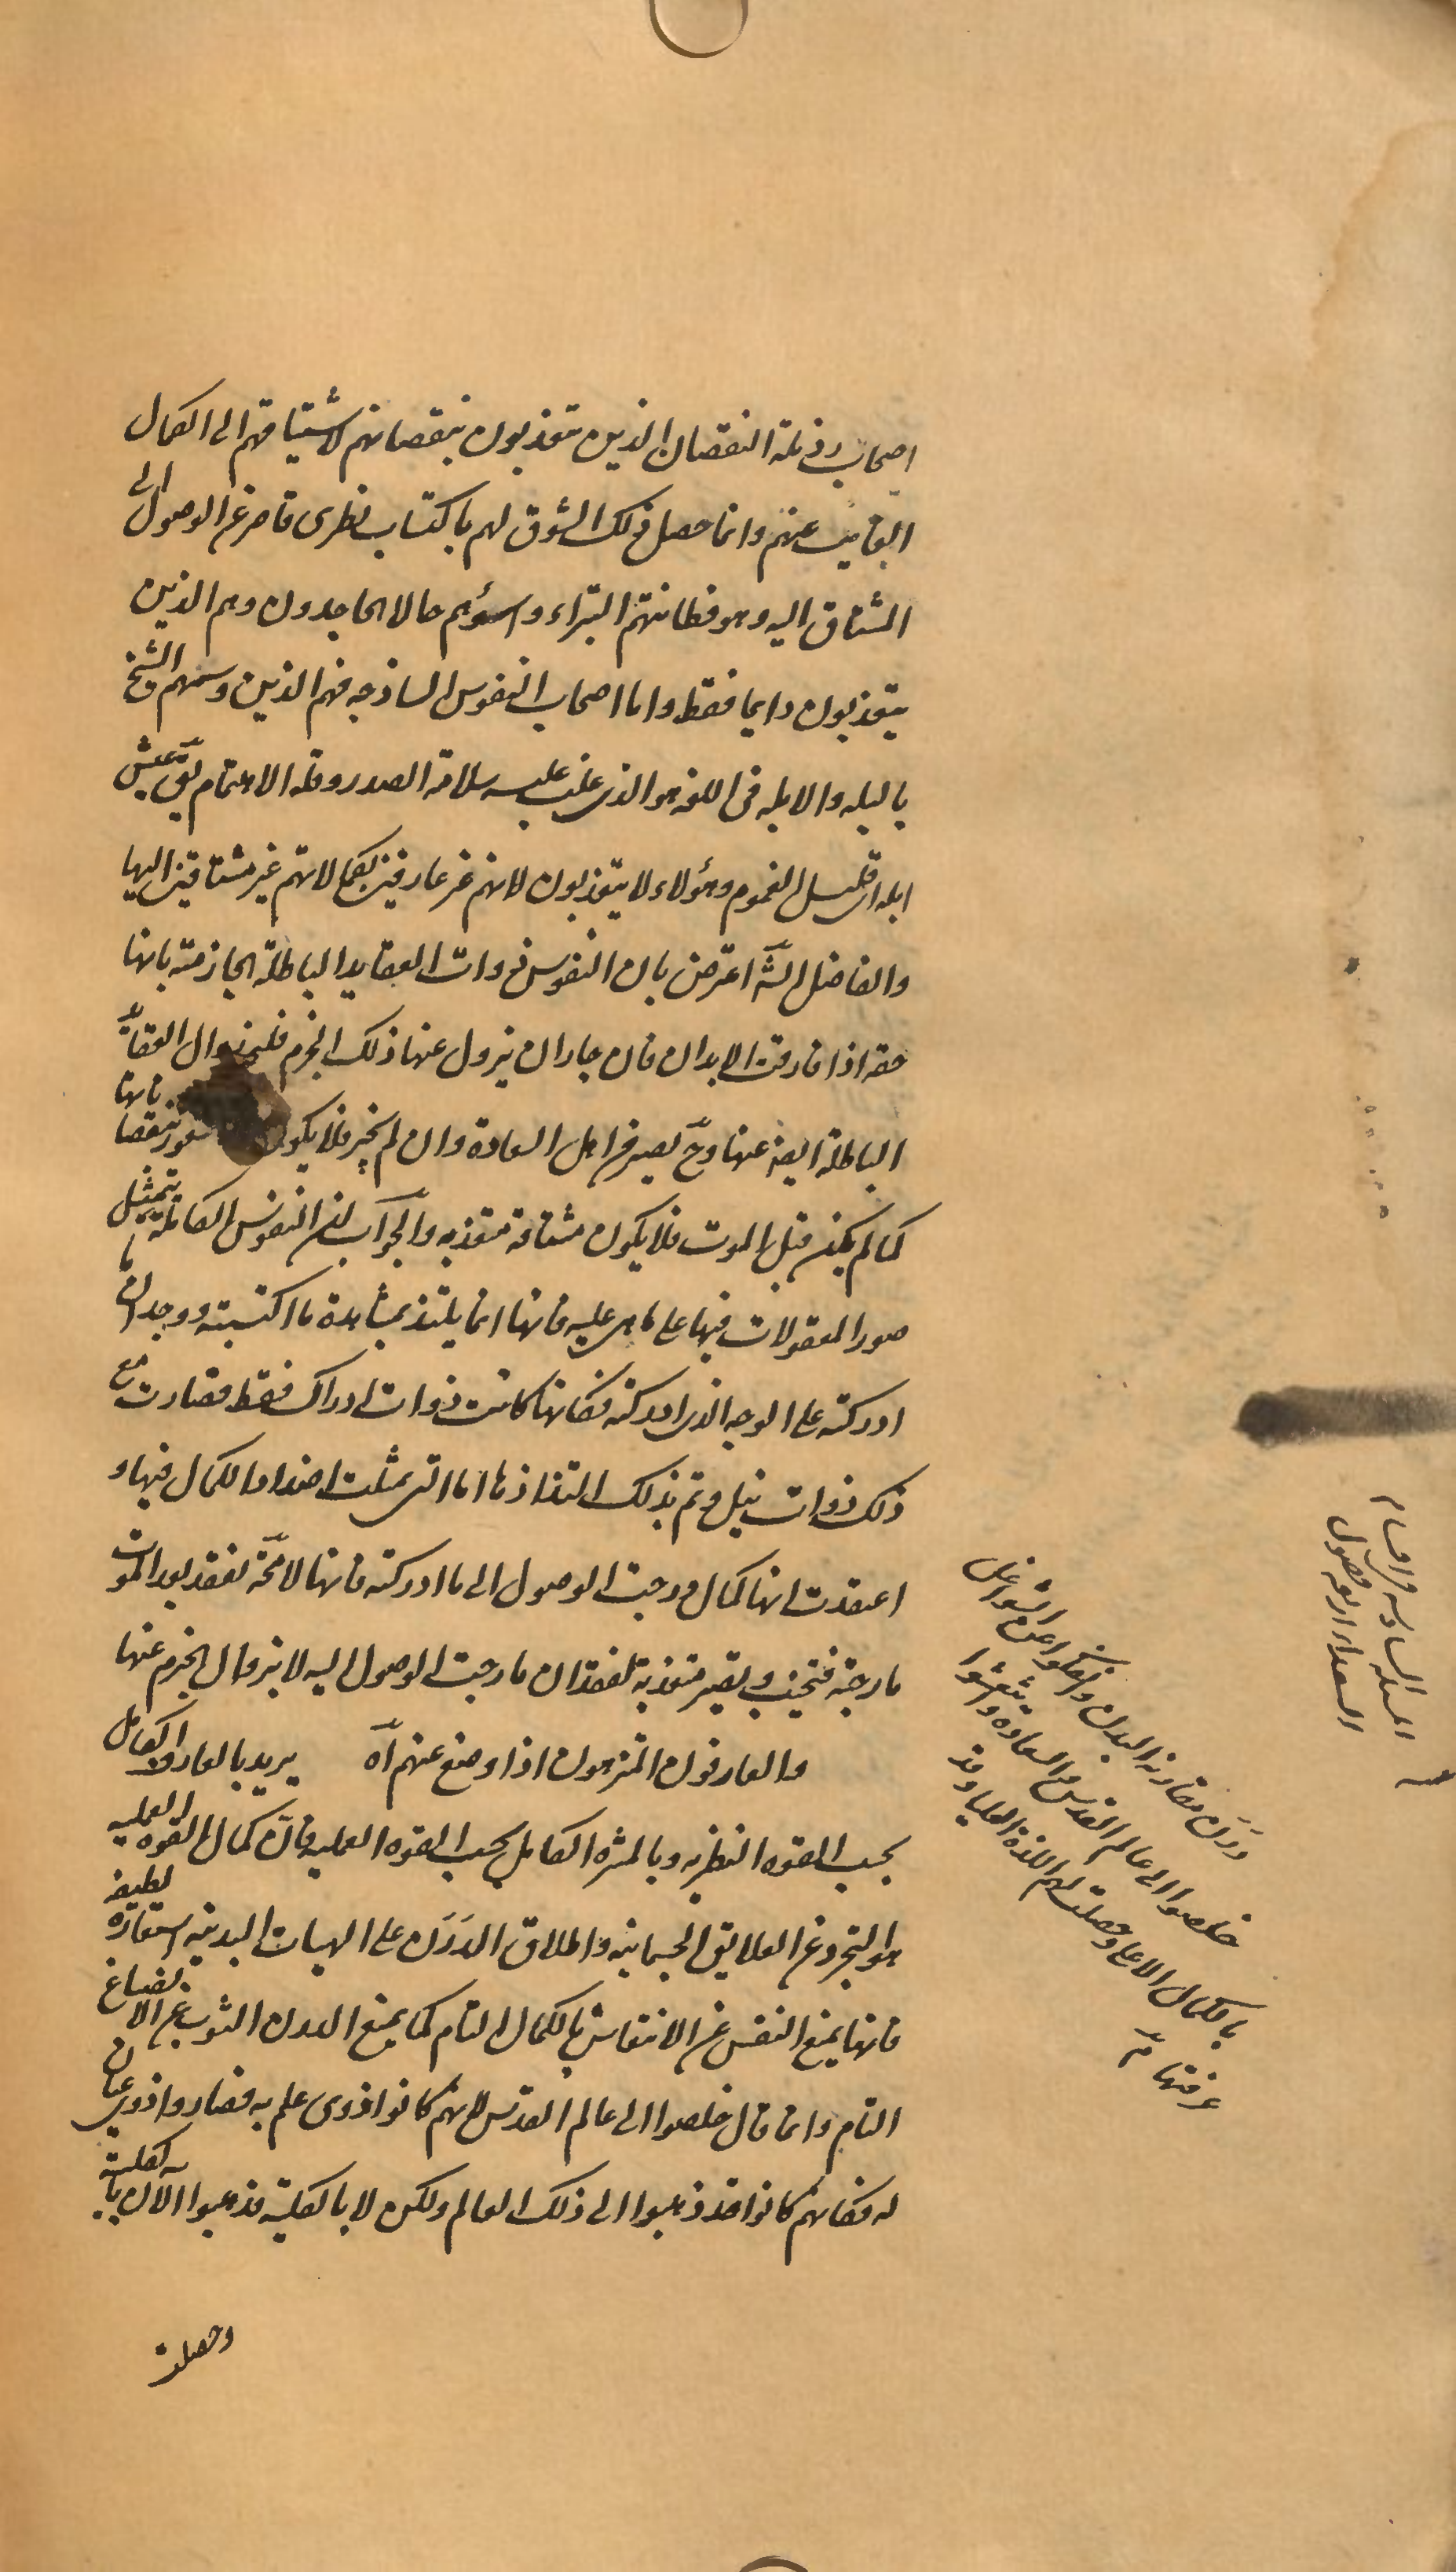 اصحاب رذیلة النقصان الذین یتعذبون بنقصانهم لاشتیاقهم الی الکمال
الغایب عنهم وانما حصل ذلک الشوق لهم باکتساب نظری قاصر عن الوصول الی
المشتاق الیه وهو فطانتهم البتراء واسوئهم حالا الجاحدون وهم الذین
یتعذبون دایما فقط واما اصحاب النفوس الساذجه فهم الذین وسمهم الشیخ
بالبله والابله فی اللغه هو الذی غلب علیه سلامة الصدر وقلة الاهتمام یق عیش
ابله ای قلیل الغموم وهؤلاء لا یتعذبون لانهم غیر عارفین بکمالاتهم غیر مشتاقین الیها
والفاضل الشّ اعترض بان النفوس ذوات العقاید الباطلة الجازمة بانها
حقه اذا فارقت الابدان فان جاز ان یزول عنها ذلک الجزم فلیجز زوال العقایّد
الباطلة ایضا عنها وحّ یصیر من اهل السعادة وان لم یجز فلا یکون لها شعور بنقصاناتها
کما لم یکن قبل الموت فلا یکون مشتاقة متعذبه والجواب ان النفوس الکاملة یتمثل
صور المعقولات فیها علی ما هی علیه فانها انما یلتذ بمشاهدة ما اکتسبته ووجدان ما
ادرکته علی الوجه الذی ادرکته فکانها کانت ذوات ادراک فقط فصارت مع
ذلک ذوات نیل وتم بذلک التذاذها اما التی تمثلت اضداد الکمال فیها و
اعتقدت انها کمال ورجت الوصول الی ما ادرکته فانها لا محّة تفقد بعد الموت
ما رجته فتخیب ویصیر متعذبة لفقدان ما رجت الوصول الیه لا بزوال الجزم عنها
والعارفون المتنزهون اذا وضع عنهم آه یرید بالعارف الکامل
بحسب القوه النظریه وبالمنزه الکامل بحسب القوه العملیه فان کمال القوه العملیه
هو التجرد عن العلایق الجسمانیه واطلاق الدَرَن علی الهیات البدنیه استعاره لطیفه
فانها یمنع النفس عن الانتقاش بالکمال التام کما یمنع الدرن الثوب عن الانصباغ
التام وانما قال خلصوا الی عالم القدس لانهم کانوا ذوی علم به فصاروا ذوی عیان
له فکانهم کانوا قد ذهبوا الی ذلک العالم ولکن لا بالکلیة فذهبوا الان بالکلیة
وحصلت
دَرَن مقارنة البدن وانفکوا عن الشواغل
خلصوا الی عالم القدس والسعاده وانتعشوا
بالکمال الاعلی وحصلت لهم اللذة العلیا وقد
عرفتها مّ
المسئله السادسه فی اقسام
السعداء